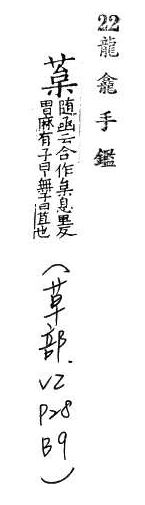 22 龍龕手鑑
菒 随函云合作枲息里反
胃麻有子曰無子曰苴也
(草部. V2 P28 B9)